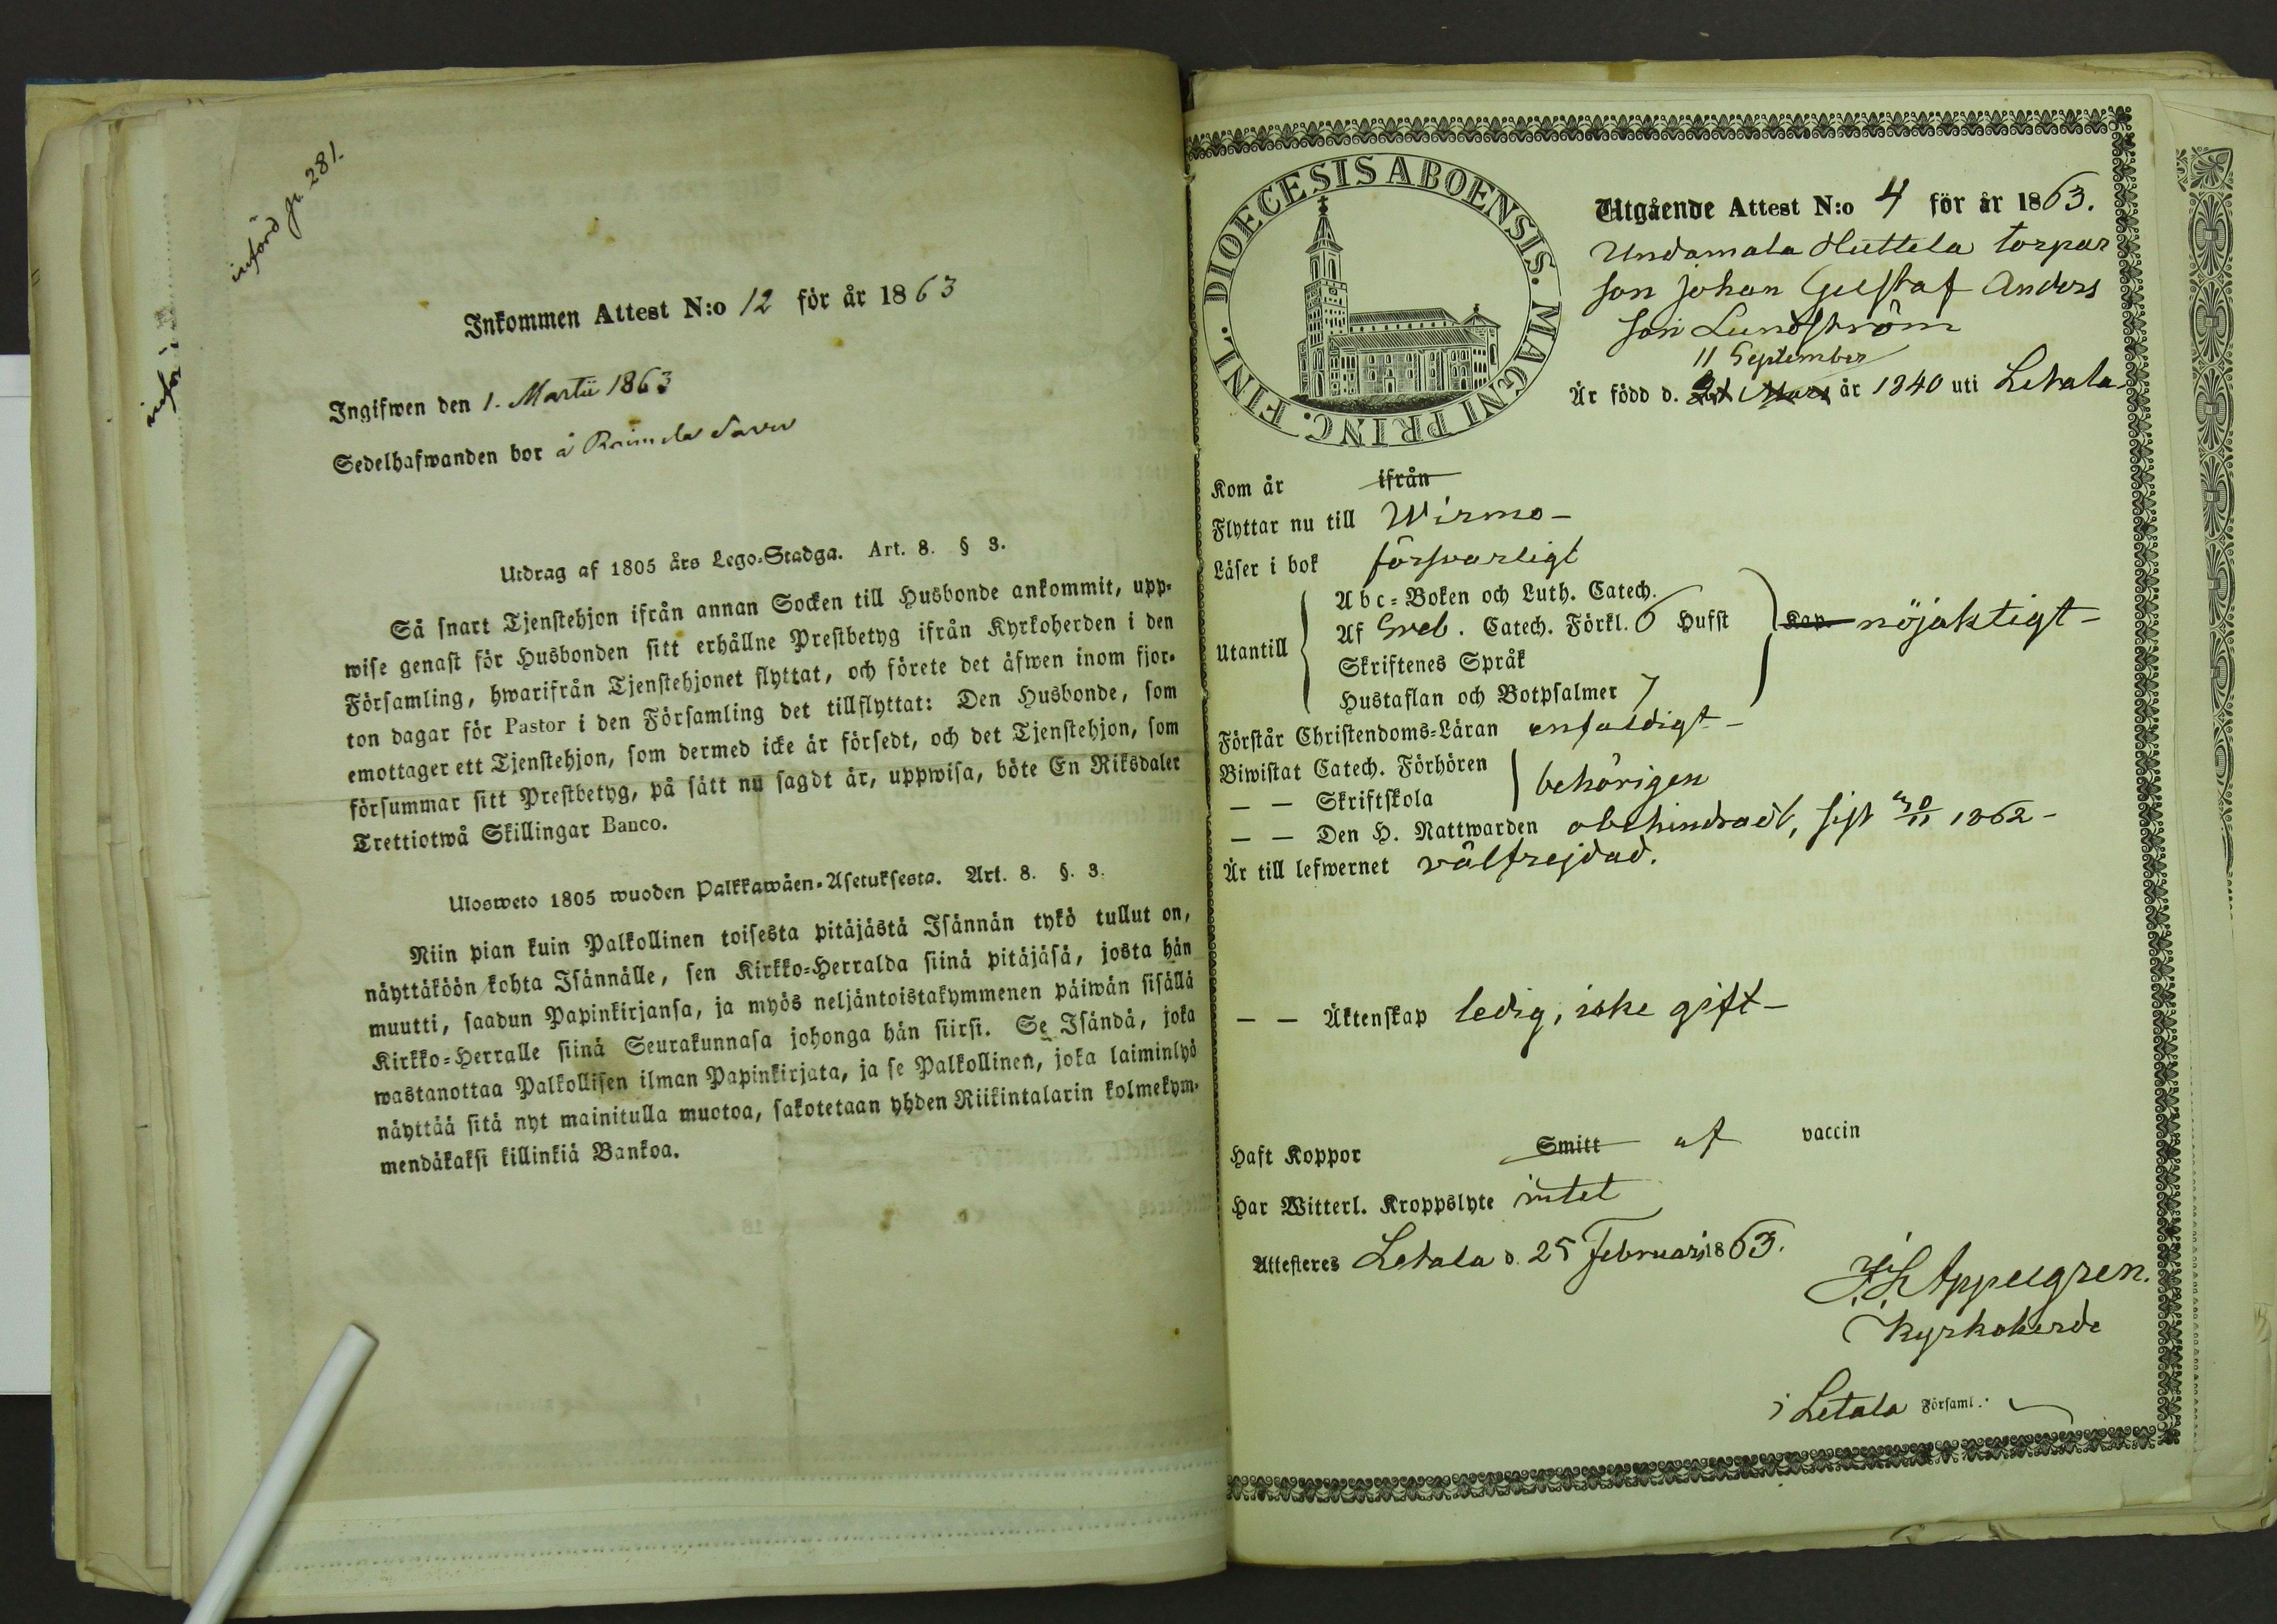 införd p. 281.
inför
Inkommen Attest N:o 12 för år 1863
Ingifwen den 1. Martii 1863
Sedelhafwanden bor å
Utdrag af 1805 års Lego-Stadga. Art. 8. § 3.
Så snart Tjenstehjon ifrån annan Socken till Husbonde ankommit, upp-
wise genast för Husbonden sitt erhållne Prestbetyg ifrån Kyrkoherden i den
Församling, hwarifrån Tjenstehjonet flyttat, och förete det äfwen inom fjor-
ton dagar för Pastor i den Församling det tillflyttat: Den Husbonde, som
emottager ett Tjenstehjon, som dermed icke är försedt, och det Tjenstehjon, som
försummar sitt Prestbetyg, på sätt nu sagdt är, uppwisa, böte En Riksdaler
Trettiotwå Skillingar Banco.
Ulosweto 1805 wuoden Palkkawäen-Asetuksesta. Art. 8. §. 3.
Niin pian kuin Palkollinen toisesta pitäjästä Isännän tykö tullut on,
näyttäköön kohta Isännälle, sen Kirkko-Herralda siinä pitäjäsä, josta hän
muutti, saadun Papinkirjansa, ja myös neljäntoistakymmenen päiwän sisällä
Kirkko-Herralle siinä Seurakunnasa johonga hän siirsi. Se Isändä, joka
wastanottaa Palkollisen ilman Papinkirjata, ja se Palkollinen, joka laiminlyö
näyttää sitä nyt mainitulla muotoa, sakotetaan yhden Riikintalarin kolmekym-
mendäkaksi killinkiä Bankoa.
DIOECESIS ABOENSIS. MAGNI PRINC. FINL.
Utgående Attest N:o 4 för år 1863.
Undamala Huttela torpar
son Johan Gustaf Anders
son Lundström
11 September
Är född d. 21 Mars år 1840 uti Letala
Kom år ifrån
Flyttar nu till Wirmo-
Läser i bok försvarligt
Utantill
Abc-Boken och Luth. Catech.
Af Sveb. Catech. Förkl. 6 Hufst Kap. nöjaktigt-
Skriftenes Språk
Hustaflan och Botpsalmer 7
Förstår Christendoms-Läran enfaldigt-
Biwistat Catech. Förhören
behörigen
— — Skriftskola
— — Den H. Nattwarden obehindradt, sist 1862-
Är till lefwernet välfrejdad.
— — Äktenskap ledig, icke gift-
Haft Koppor Smitt af vaccin
Har Witterl. Kroppslyte intet
Attesteres Letala d. 25 Februari 1863.
Appelgren.
Kyrkoherde
i Letala Församl.